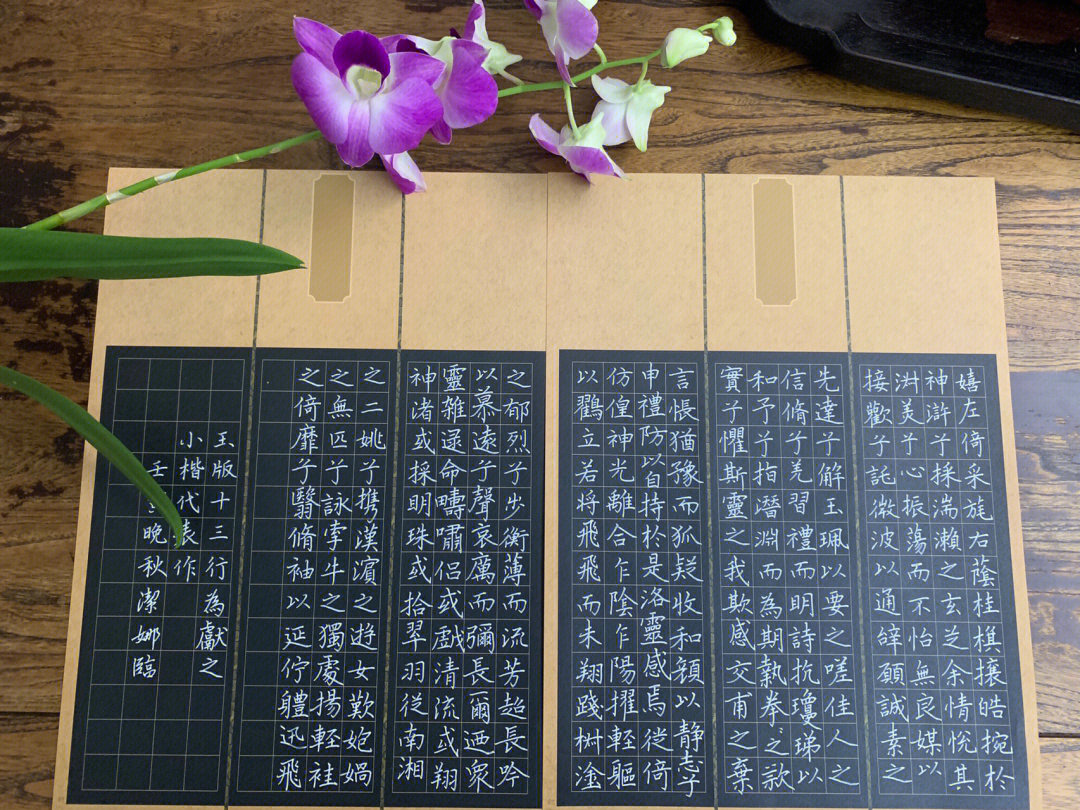 嬉左倚采旄右蔭桂棋攘皓捥於
神滸兮採湍瀨之玄芝余情悅其
淑美兮心振蕩而不怡無良媒以
接歡兮託微波以通辝願誠素之
先達兮解玉珮以要之嗟佳人之
信脩兮羌習禮而明詩抗瓊珶以
和予兮指潛淵而為期執拳々款
實兮懼斯靈之我欺感交甫之棄
言悵猶豫而狐疑收和顏以静志兮
申禮防以自持於是洛靈感焉徙倚
仿偟神光離合乍陰乍陽擢輕軀
以鸛立若將飛飛而未翔踐椒塗
之郁烈兮步衡薄而流芳超長吟
以慕遠兮聲哀厲而彌長爾迺眾
靈雜遝命疇嘯侶或戲清流或翔
神渚或採明珠或拾翠羽從南湘
之二姚兮攜漢濱之遊女歎匏媧
之無匹兮詠牽牛之獨處揚輕袿
之倚靡兮翳脩袖以延佇體迅飛
玉版十三行為獻之
小楷代表作
壬晚秋潔娜臨